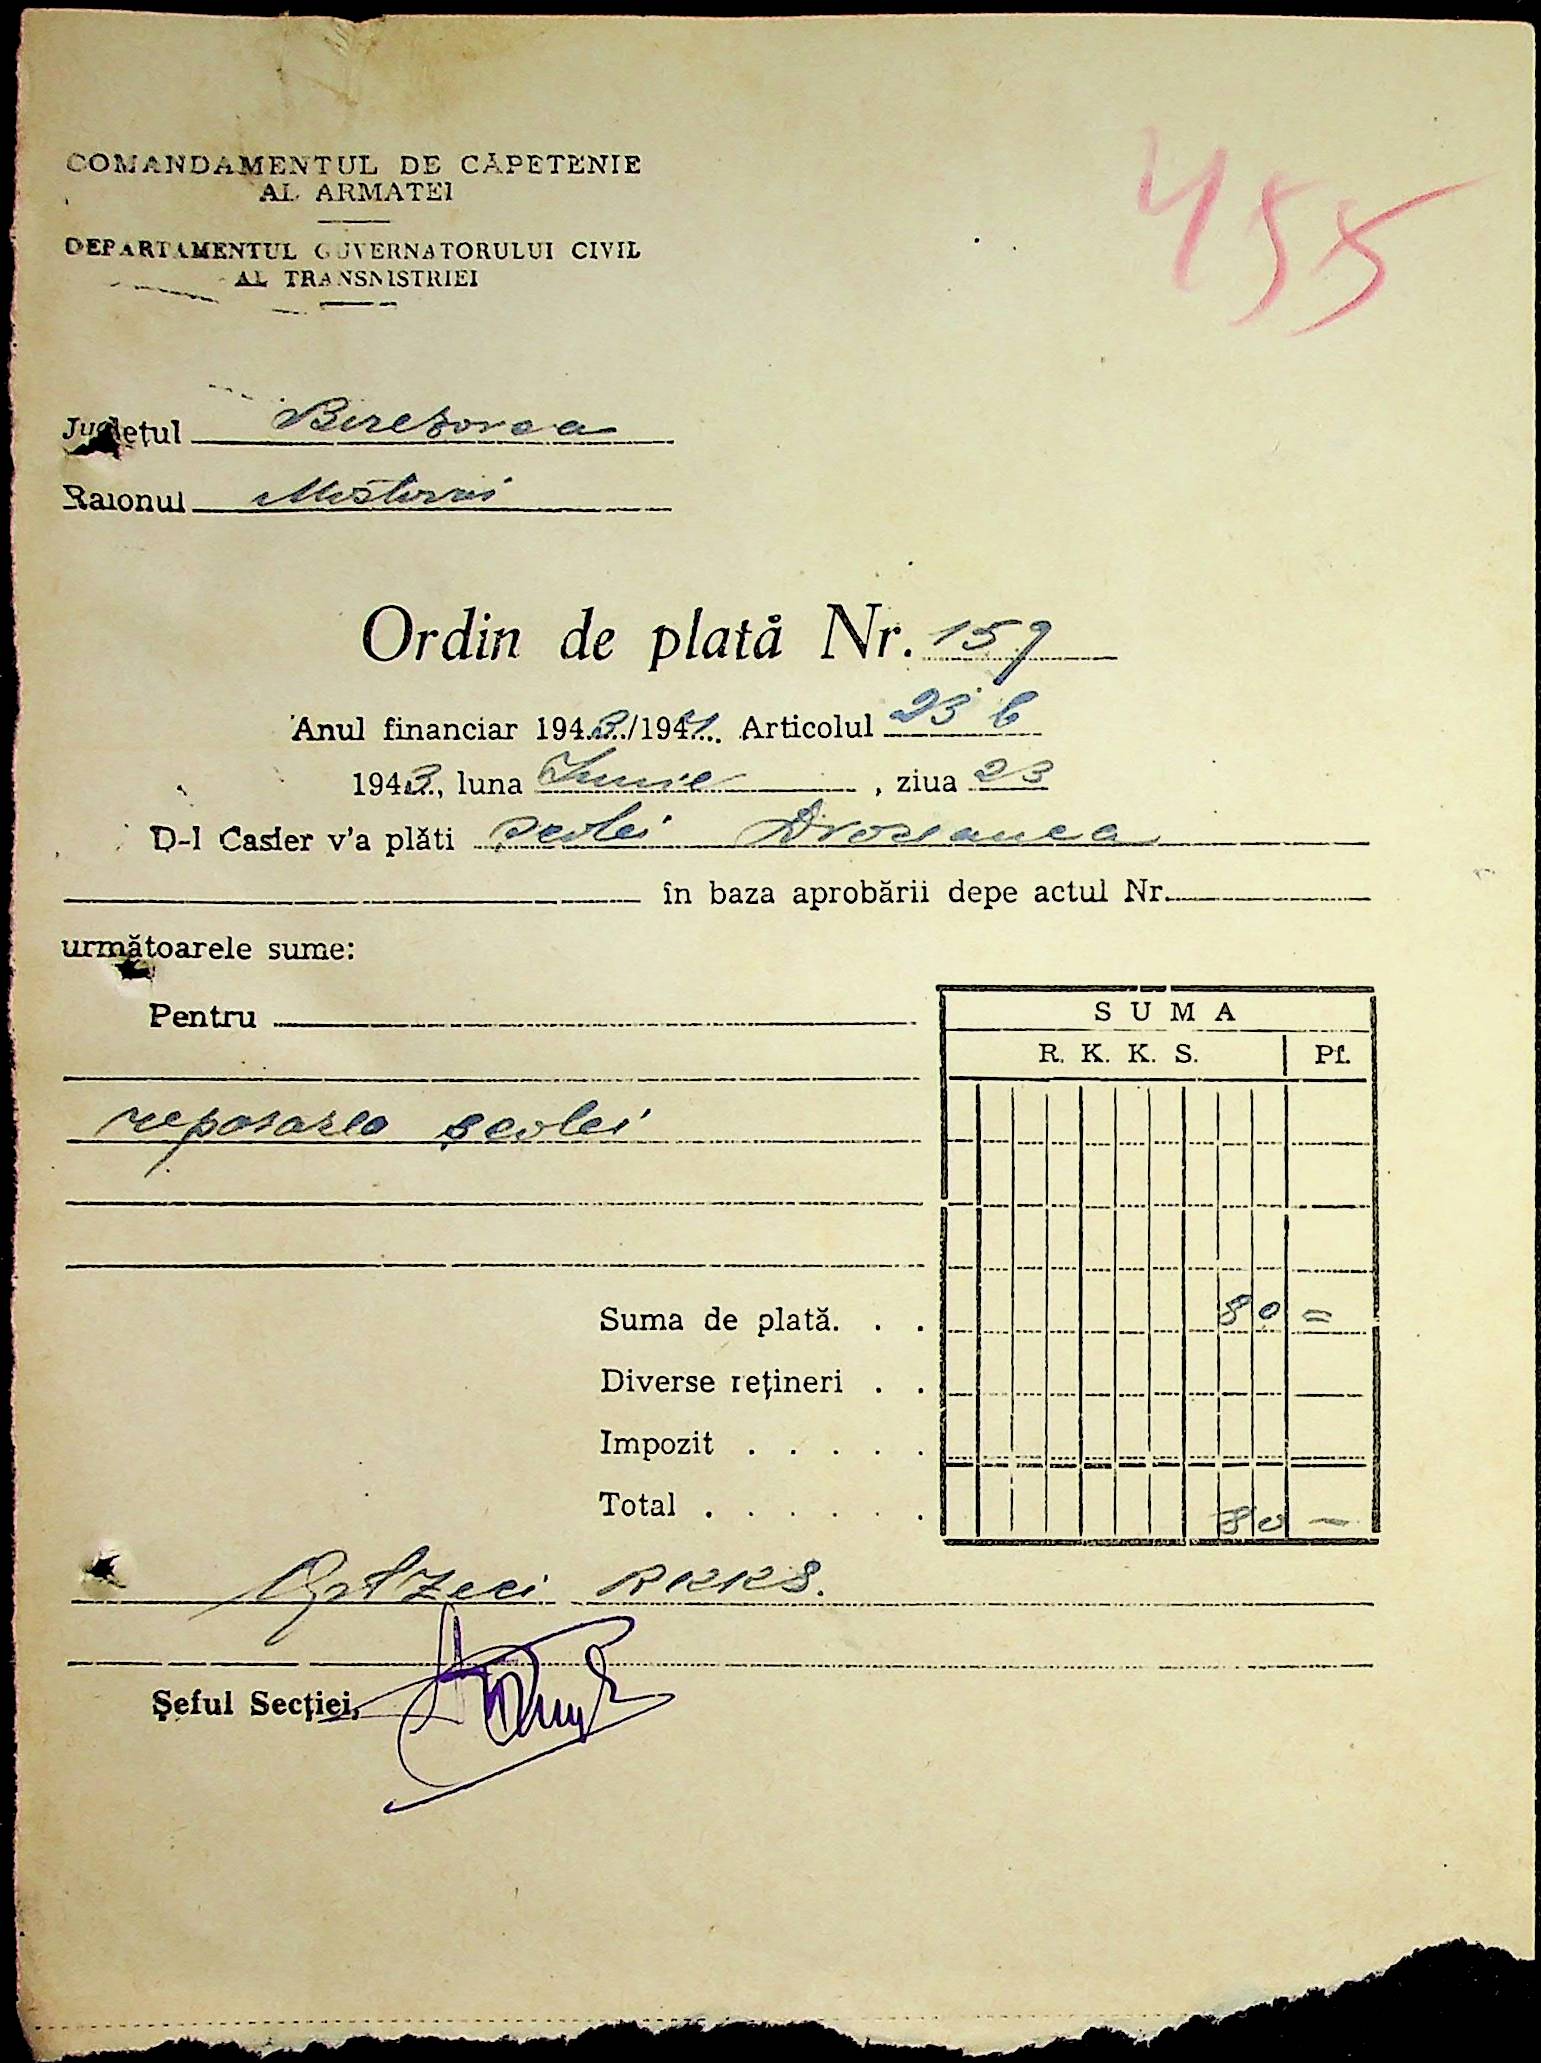 COMANDAMENTUL DE CĂPETENIE
AL ARMATEI
DEPARTAMENTUL GUVERNATORULUI CIVIL
AL TRANSNISTRIEI
455
Județul Berezovca
Raionul Mostovoi
Ordin de plată Nr. 159
Anul financiar 1943/1944. Articolul 23 b
1943, luna Iunie, ziua 23
D-l Casier v'a plăti școlei
în baza aprobării depe actul Nr.
următoarele sume:
Pentru
SUMA
R. K. K. S. Pf.
repararea școlei
Suma de plată. . . 80 =
Diverse rețineri . .
Impozit . . . . .
Total . . . . . . 80 —
Optzeci RKKS.
Șeful Secției,